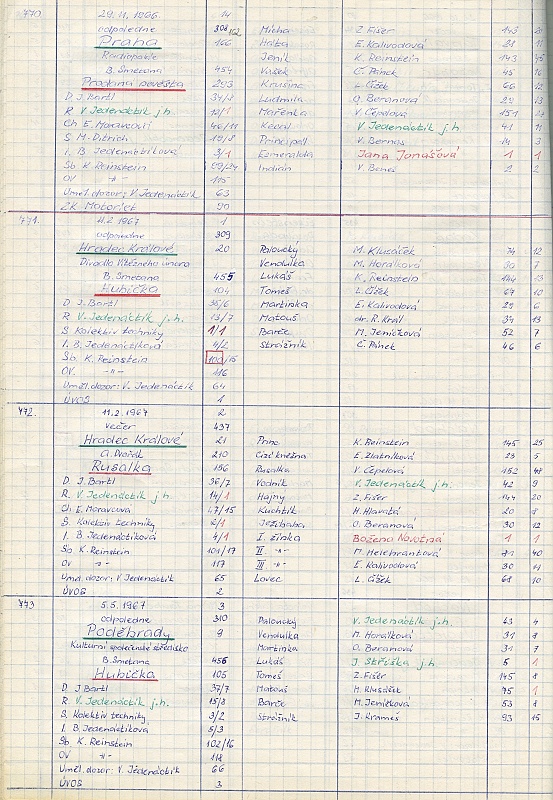 770 29.11.1966 14
odpoledne 308 Mícha Z. Fišer 143 20
Praha 166 Háta E. Kalivodová 21 11
Radiopalác Jeník K. Reinstein 143
B. Smetana 454 Vašek Č. Pánek 45 16
Prodaná nevěsta 293 Krušina L. Číšek 66 12
D. J. Bartl Ludmila O. Beranová 29 13
R. V. Jedenáctík j.h. Mařenka V. Čepelová 151
Ch E. Moravcová 46/11 Kecal V. Jedenáctík j.h. 41 11
S. M. Ditrich Principál V. Bernas 14 3
I. B. Jedenáctíková Esmeralda Jana Jonášová 1 1
Sb. K. Reinstein Indián V. Beneš 2 2
OV -"- 115
Uměl. dozor: V. Jedenáctík 63
ZK Motorlet 90
771. 11.2.1967 1
odpoledne 309
Hradec Králové 20 Paloucký M. Klusáček 74 12
Divadlo Vítězného února Vendulka M. Horálková 30 7
B. Smetana 455 Lukáš K. Reinstein 144 13
Hubička 104 Tomeš L. Číšek 67 10
D. J. Bartl 35/6 Martinka E. Kalivodová 29 6
R. V. Jedenáctík j.h. 13/7 Matouš dr. R. Král 34 13
S Kolektiv techniky 1/1 Barče M. Jeníčková 52 7
I. B. Jedenáctíková 4/2 Strážník Č. Pánek 46 6
Sb. K. Reinstein 100/15
OV. -"- 116
Uměl. dozor: V. Jedenáctík 64
ÚVOS 1
772. 11.2.1967 2
večer 437
Hradec Králové 21 Princ K. Reinstein 145 25
A. Dvořák 210 Cizí kněžna E. Zlatníková 23 5
Rusalka 156 Rusalka V. Čepelová 152 48
D. J. Bartl 36/7 Vodník V. Jedenáctík j.h. 42 9
R. V. Jedenáctík j.h. 14/1 Hajný Z. Fišer 144 20
Ch E. Moravcová 47/15 Kuchtík H. Hlavatá 20 8
S. Kolektiv techniky 2/1 Ježibaba O. Beranová 30 12
I. B. Jedenáctíková 4/1 I. žínka Božena Novotná 1 1
Sb K. Reinstein 101/17 II -"- M. Helebrantová 71 40
OV -"- 117 III -"- E. Kalivodová 30 11
Uměl. dozor: V. Jedenáctík 65 Lovec L. Číšek 68 10
ÚVOS 2
773 5.5.1967 3
odpoledne 310 Paloucký V. Jedenáctík j.h. 43 4
Poděbrady 9 Vendulka M. Horálková 31 8
Kulturní společenské středisko Martinka O. Beranová 31 7
B. Smetana 456 Lukáš J. Stříška j.h. 5 1
Hubička 105 Tomeš Z. Fišer 145 8
D. J. Bartl 37/7 Matouš M. Klusáček 75 1
R. V. Jedenáctík j.h. 15/8 Barče M. Jeníčková 53 8
S. Kolektiv techniky 3/2 Strážník J. Krames 93 15
I. B. Jedenáctíková 5/3
Sb. K. Reinstein 102/16
OV -"- 118
Uměl. dozor: V. Jedenáctík 66
ÚVOS 3